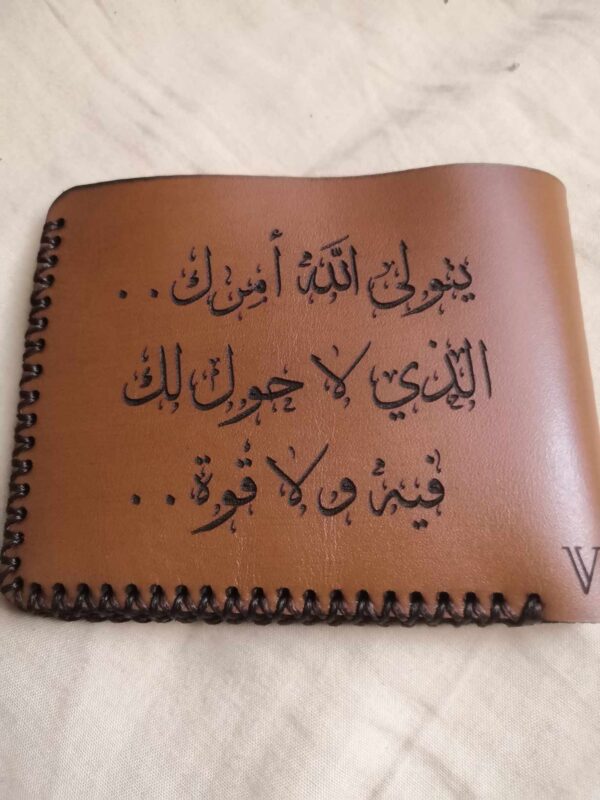 يتولى اللَّهُ أمرك . .
الذي لا حول لك
فيه ولا قوة . .
V